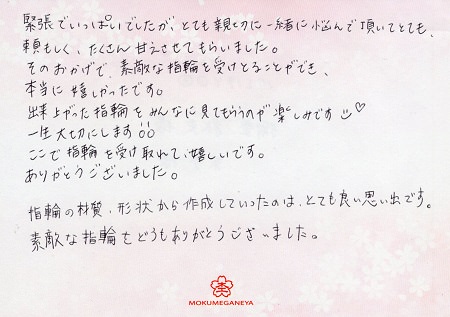 緊張でいっぱいでしたが、とても親切に一緒に悩んで頂いてとても、
頼もしく、たくさん甘えさせてもらいました。
そのおかげで、素敵な指輪を受けとることができ、
本当に嬉しかったです。
出来上がった指輪をみんなに見てもらうのが楽しみです♡
一生大切にします
ここで指輪を受け取れて、嬉しいです。
ありがとうございました。
指輪の材質、形状から作成していったのは、とても良い思い出です。
素敵な指輪をどうもありがとうございました。
MOKUMEGANEYA